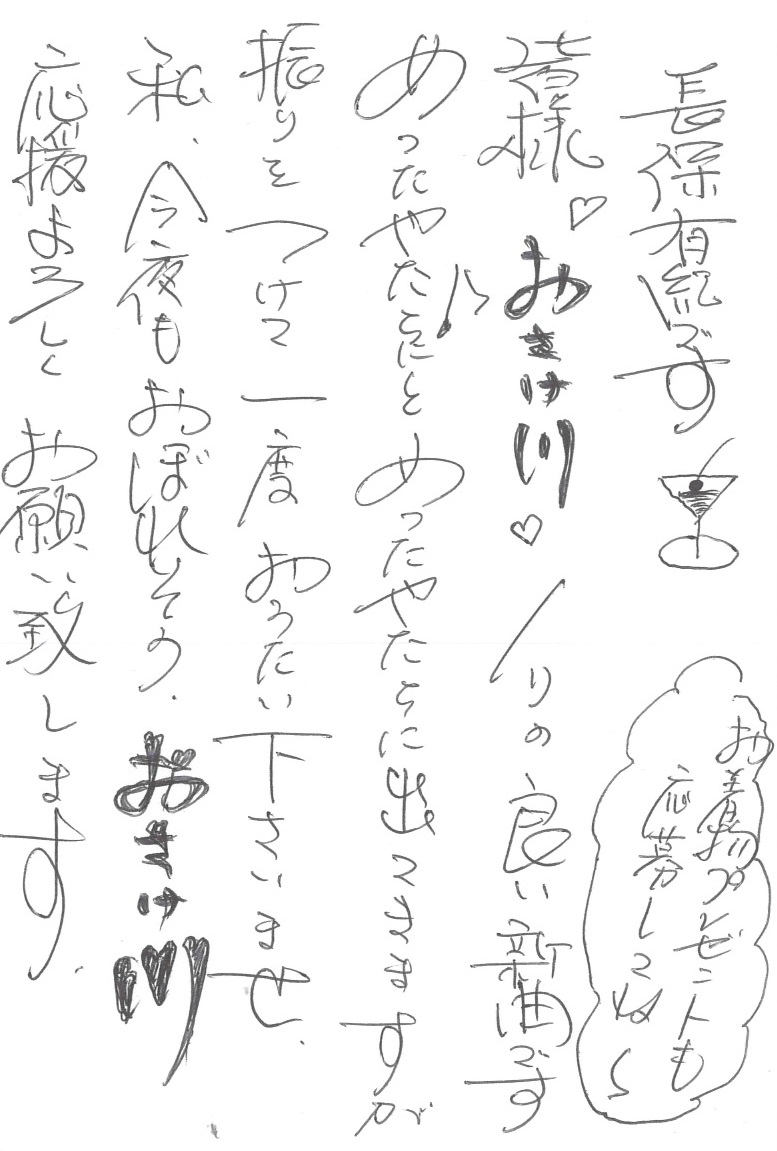 長保有紀です
お着物プレゼントも
応募してね
皆様♡おさけ川♡ノリの良い新曲です
めったやたらにと めったやたらに出てきますが
振りをつけて 一度おうたい下さいませ.
私、今夜も おぼれそう. おさけ川
応援よろしく お願い致します.